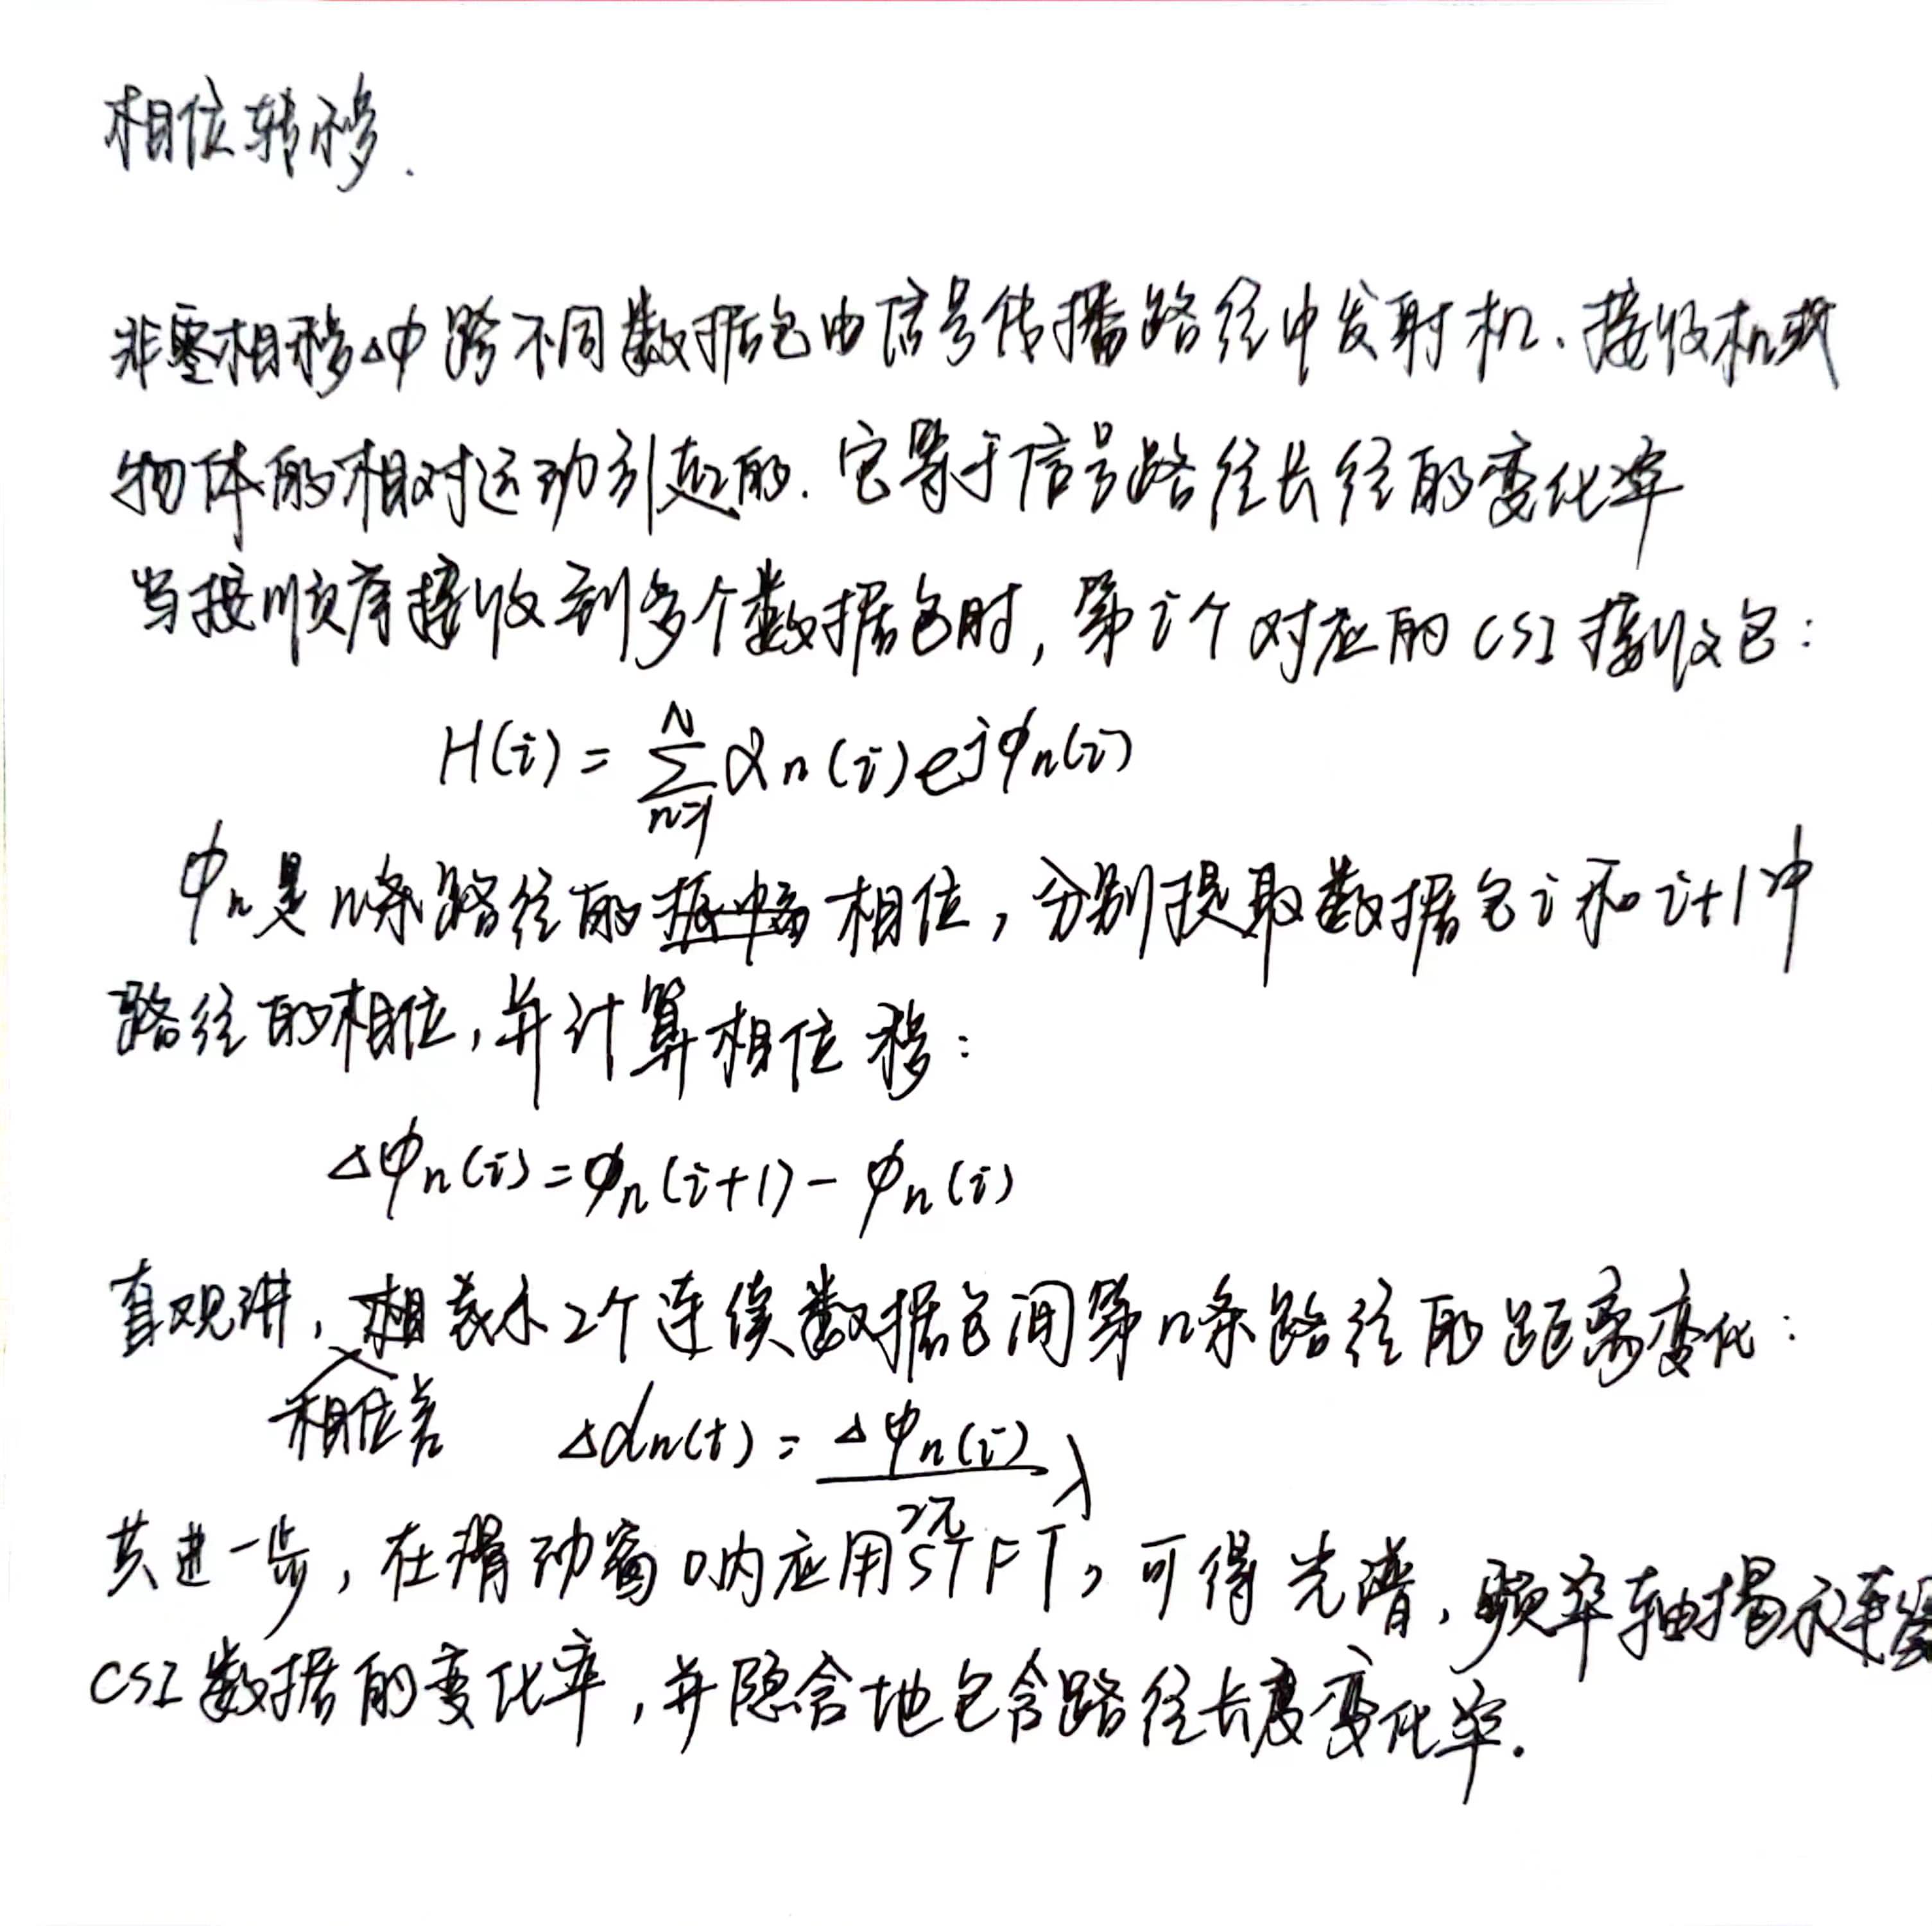 相位转移.
非零相移△φ 跨不同数据包由信号传播路径中发射机、接收机或
物体的相对运动引起的. 它等于信号路径长径的变化率
当按顺序接收到多个数据包时, 第i个对应的CSI接收包:
H(i) = ∑_{n=1}^{N} αn(i)ejφn(i)
φn是n条路径的相位, 分别提取数据包i和i+1中
路径的相位, 并计算相位移:
△φn(i)=φn(i+1)-φn(i)
直观讲, 相位差表示2个连续数据包间第n条路径的距离变化:
△dn(t) = △φn(i)/2π λ
其进一步, 在滑动窗口内应用STFT, 可得光谱, 频率轴揭示连续
CSI数据的变化率, 并隐含地包含路径长度变化率.